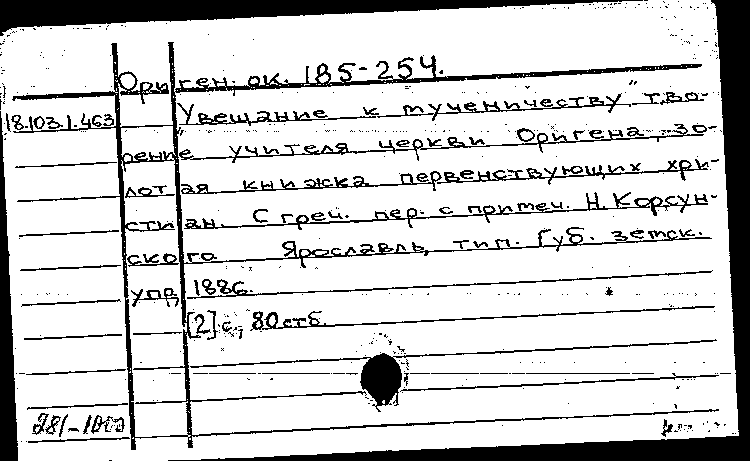 Ориген, ок. 185-254.
18.103.1.463 Увещание к мученичеству", тво-
рение учителя церкви Оригена, зо-
лотая книжка первенствующих хри-
стиан. С греч. пер. с примеч. Н. Корсун-
ского Ярославль, тип. Губ. земск.
упр, 1886.
[2] с., 80 стб.
281-1000